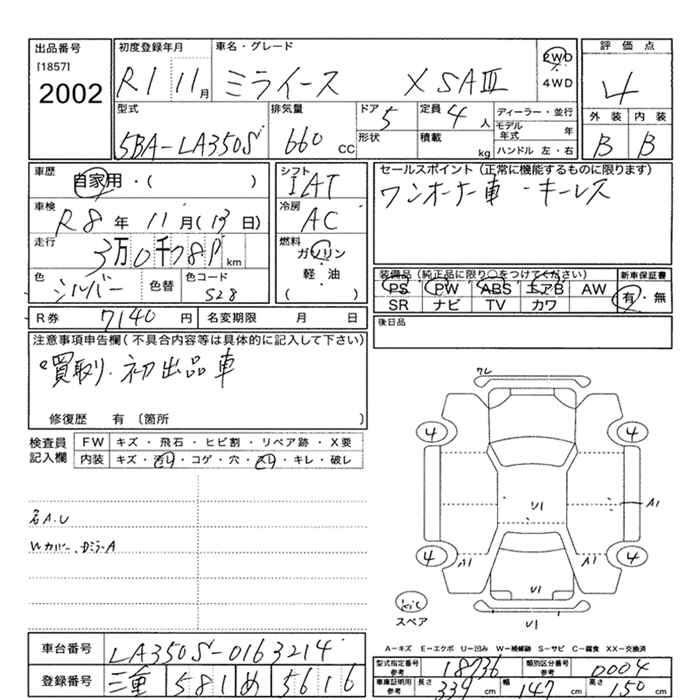 出品番号
[1857]
2002
初度登録年月
R1 11月
車名・グレード
ミライース X SAⅢ
2WD
4WD
評価点
4
外装 内装
B B
型式
5BA-LA350S
排気量
660 cc
ドア
5
形状
定員
4人
積載
kg
ディーラー・並行
モデル年式 年
ハンドル 左・右
車歴
自家用・( )
車検
R8年11月(13日)
走行
3万0千78 km
色
シルバー
色替
色コード
S28
シフト
IAT
冷房
AC
燃料
ガソリン
軽・油
( )
セールスポイント(正常に機能するものに限ります)
ワンオーナー車・キーレス
装備品(純正品に限り○をつけてください)
PS PW ABS エアB AW
SR ナビ TV カワ
新車保証書
有・無
R券 7140円
名変期限 月 日
後日品
注意事項申告欄(不具合内容等は具体的に記入して下さい)
買取り.初出品車
修復歴 有〔箇所 〕
検査員記入欄
FW キズ・飛石・ヒビ割・リペア跡・X要
内装 キズ・汚れ・コゲ・穴・スレ・キレ・破レ
各A.U
Wカバー、DミラーA
ワレ
4 4
U1
A1
4 4
A1 A1
U1
U1
スペア
A=キズ E=エクボ U=凹み W=補修跡 S=サビ C=腐食 XX=交換済
車台番号 LA350S-0163214
登録番号 三重 581 め 5616
型式指定番号 参考 18936
類別区分番号 参考 0004
車庫証明用 参考 長さ 339 cm 幅 147 cm 高さ 150 cm